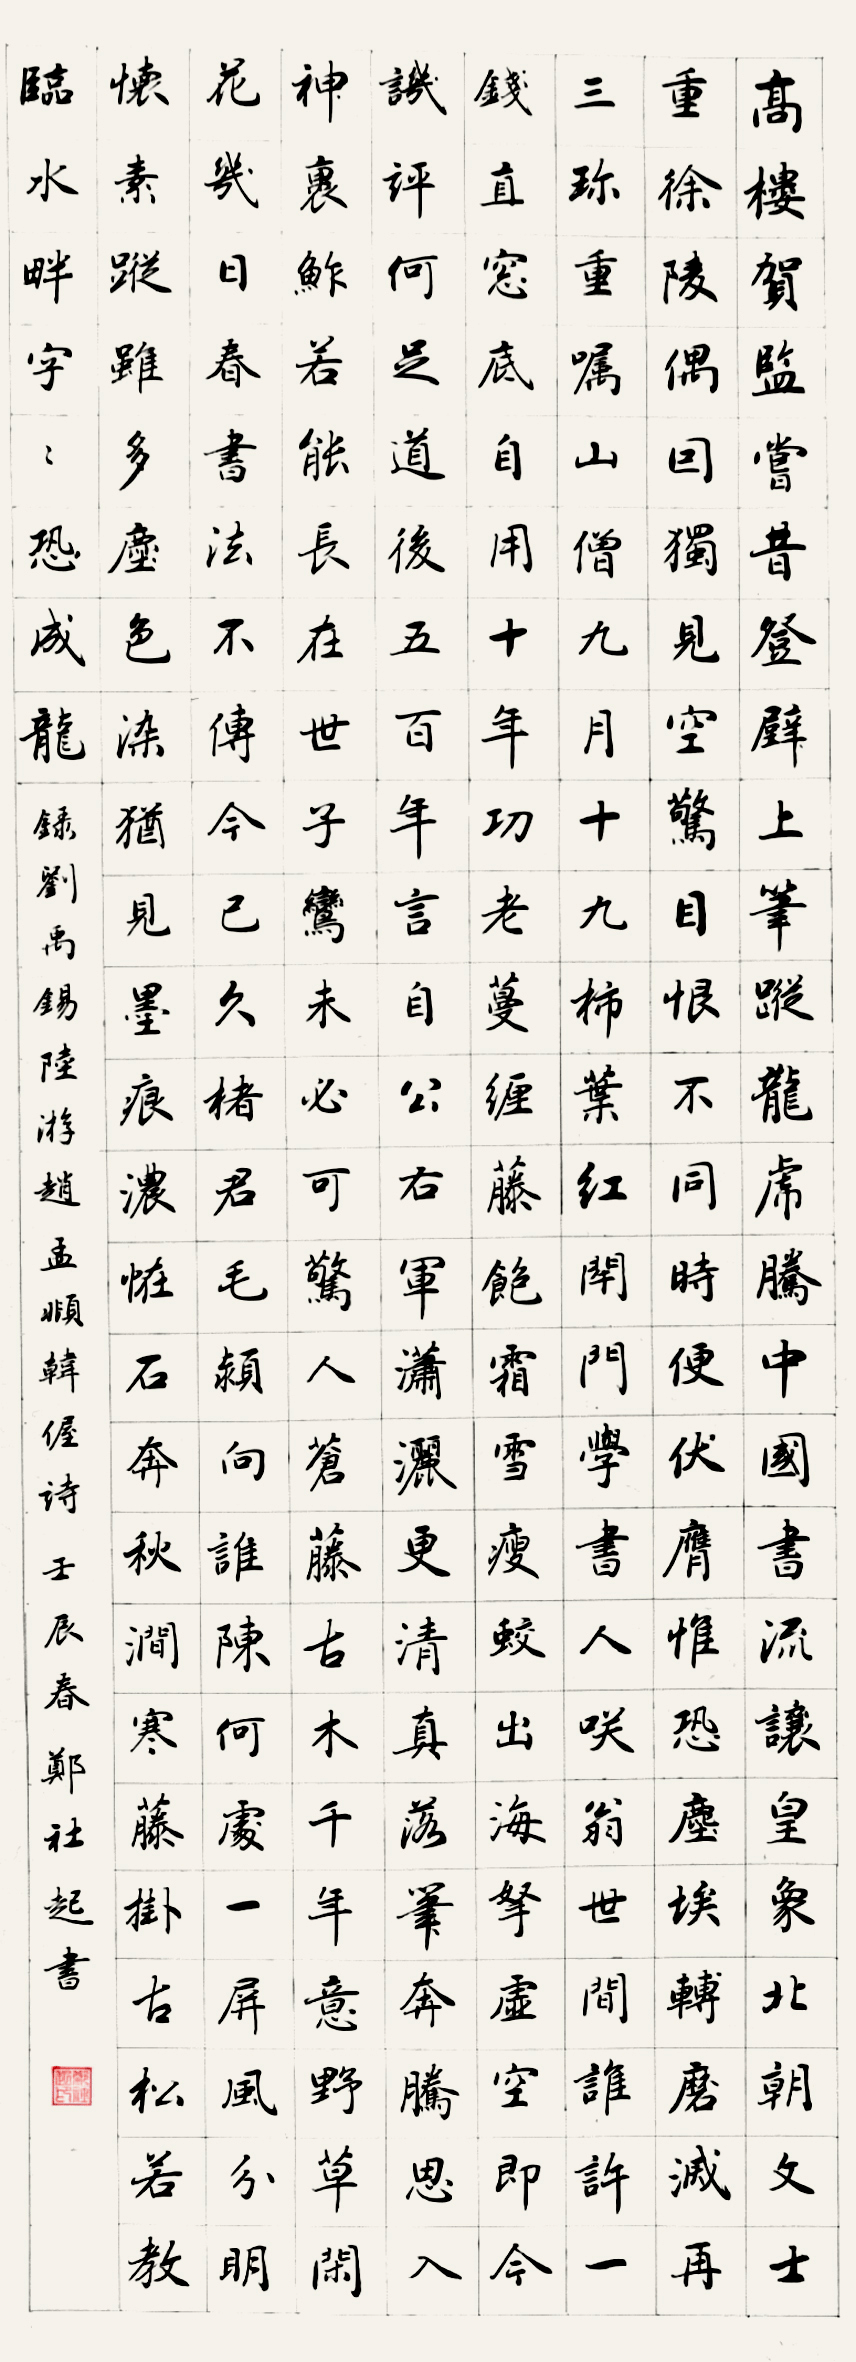 高樓賀監嘗昔登壁上筆蹤龍虎騰中國書流讓皇象北朝文士
重徐陵偶回獨見空驚目恨不同時便伏膺惟恐塵埃轉磨滅再
三珎重嘱山僧九月十九柿葉紅閉門學書人咲翁世間誰許一
錢直窓底自用十年功老蔓纏藤飽霜雪瘦蛟出海拏虛空即今
譏評何足道後五百年言自公右軍瀟灑更清真落筆奔騰思入
神裏鮓若能長在世子鸞未必可驚人蒼藤古木千年意野草閑
花幾日春書法不傳今已久楮君毛穎向誰陳何處一屏風分明
懷素蹤雖多塵色染猶見墨痕濃恠石奔秋澗寒藤掛古松若教
臨水畔字〻恐成龍
錄劉禹錫陸游趙孟頫韓偓詩 壬辰春鄭社起書